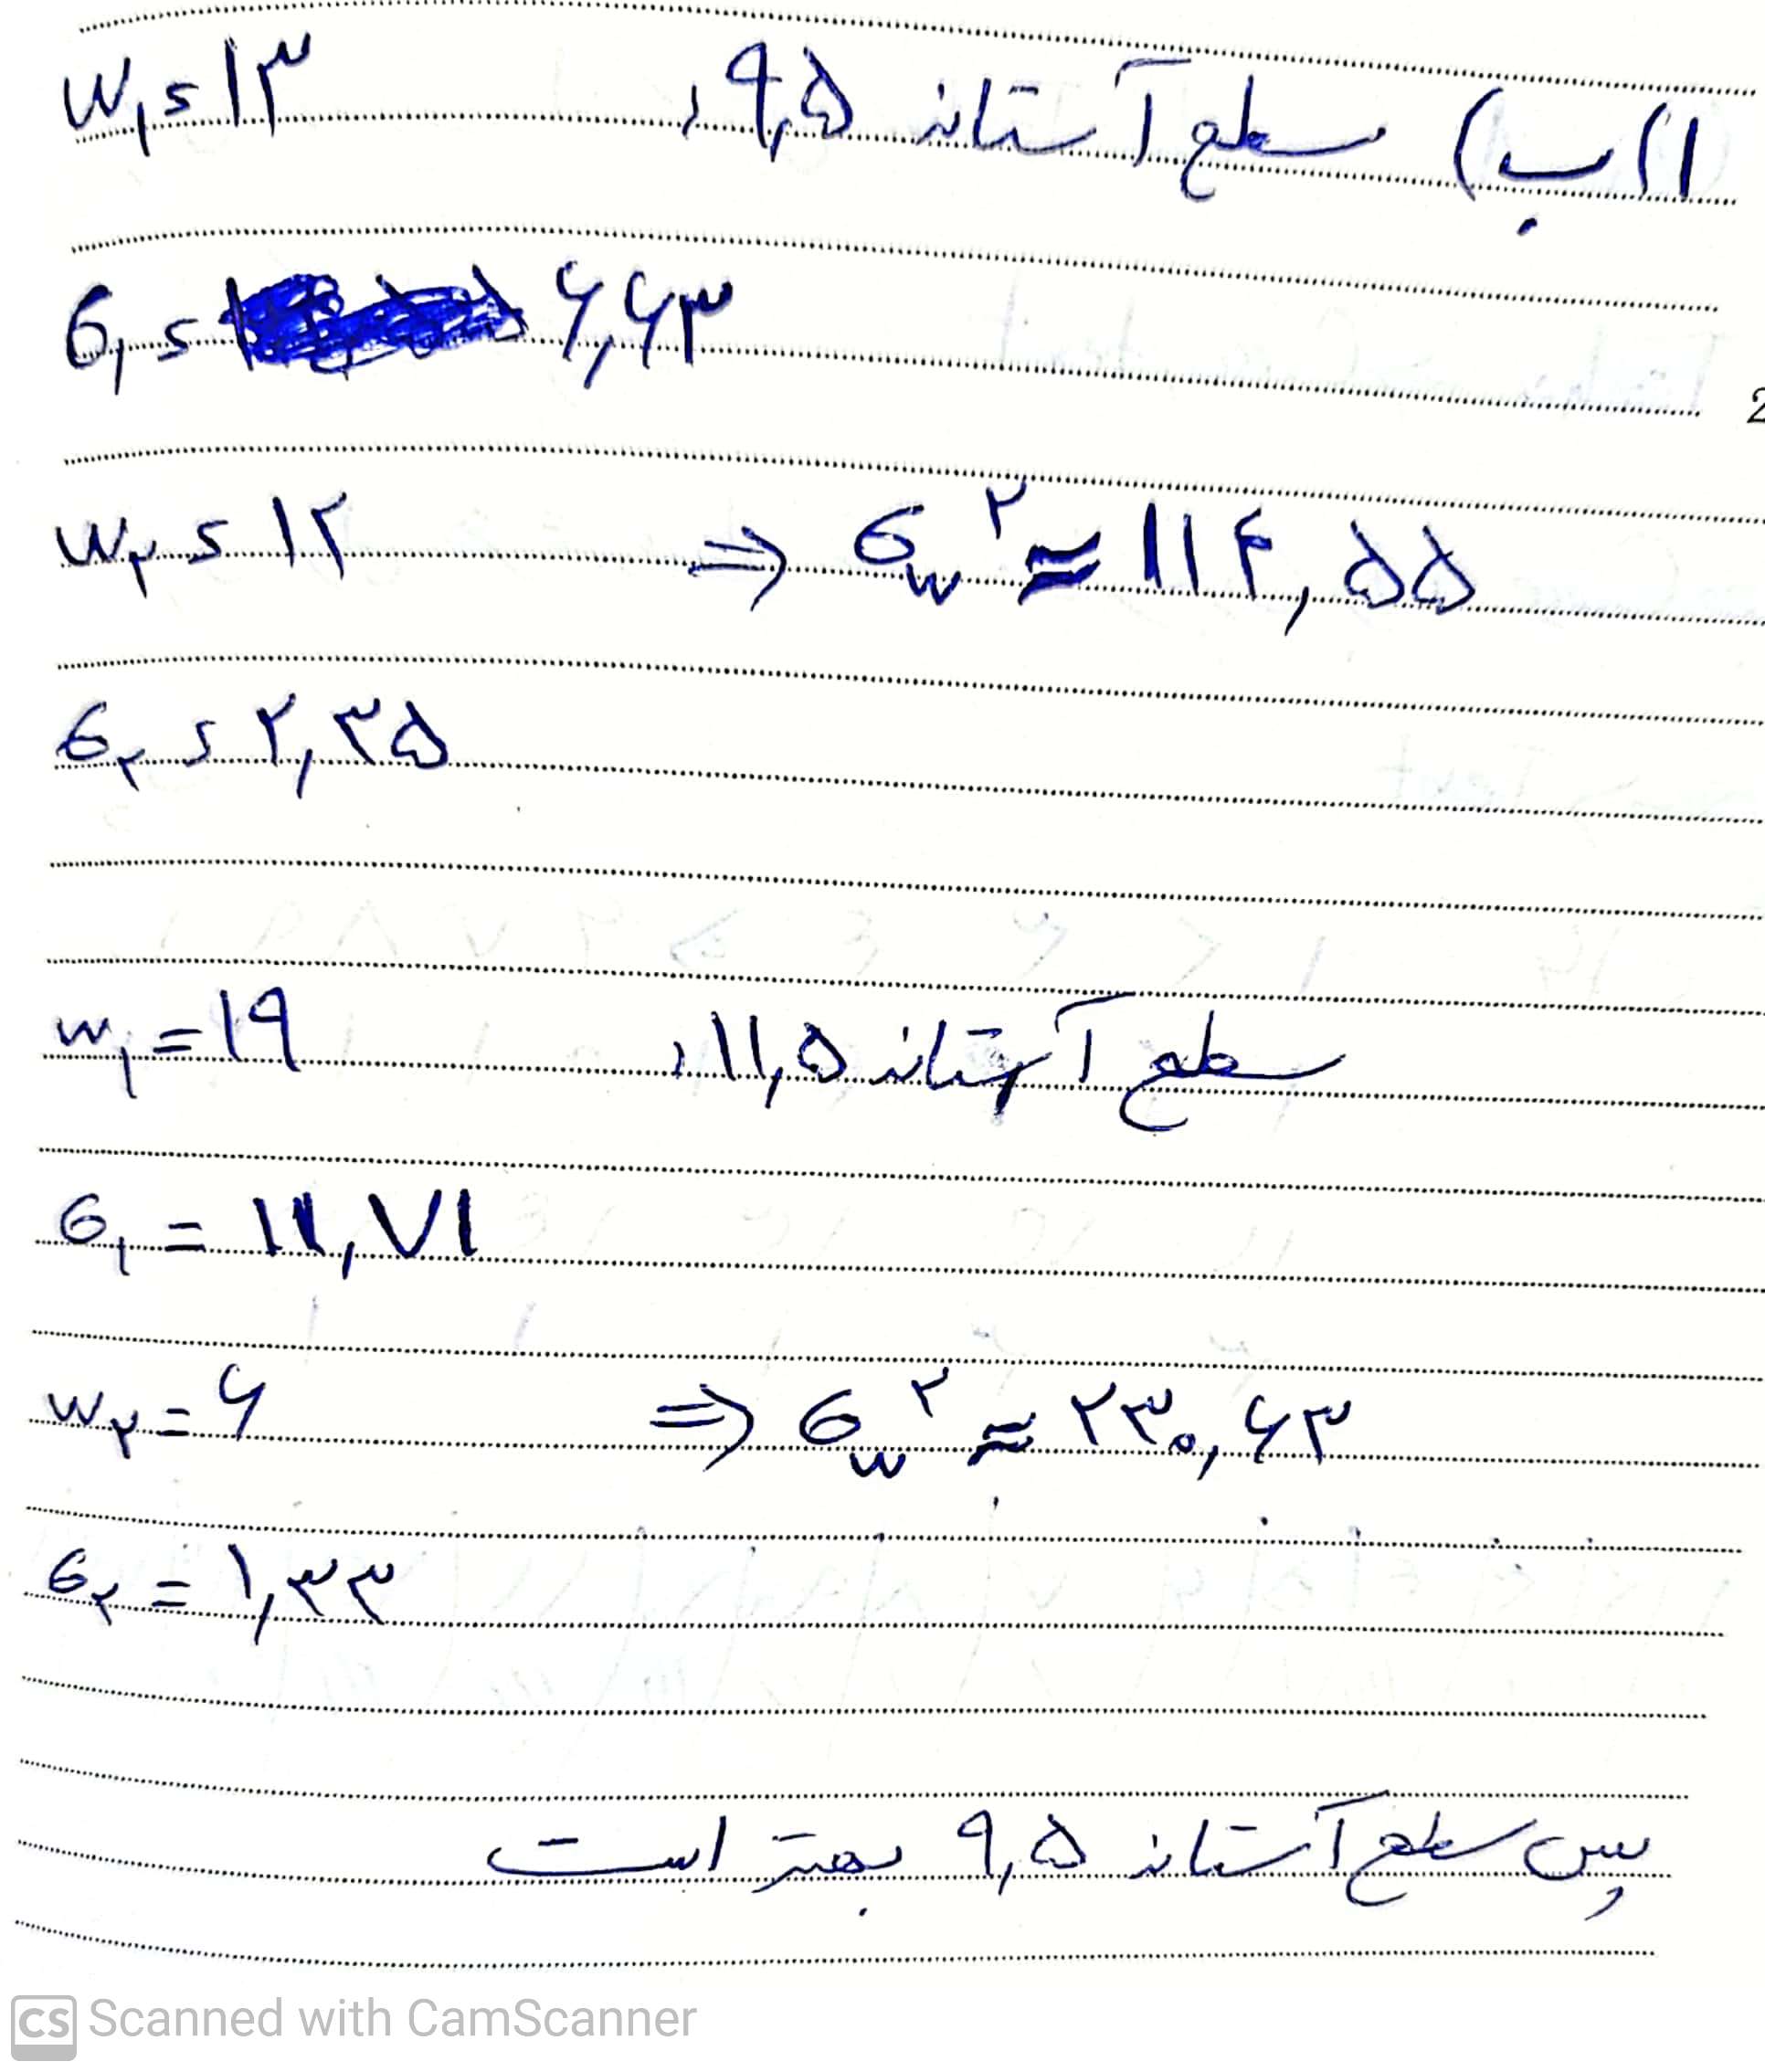 ۱۱ ب) سطح آستانه ۹,۵ : W₁ = ۱۳
σ₁ = ۶,۶۳
2
W₂ = ۱۲ ⇒ σ_w² ≈ ۱۱۴,۵۵
σ₂ = ۲,۳۵
سطح آستانه ۱۱,۵ : W₁ = ۱۹
σ₁ = ۱۱,۷۱
W₂ = ۶ ⇒ σ_w² ≈ ۲۳۰,۶۳
σ₂ = ۱,۳۳
پس سطح آستانه ۹,۵ بهتر است
CS Scanned with CamScanner